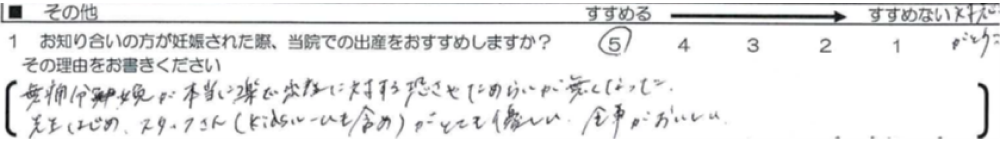 ■ その他 すすめる すすめない
1 お知り合いの方が妊娠された際、当院での出産をおすすめしますか? 5 4 3 2 1
その理由をお書きください
無痛分娩が本当に楽で出産に対する恐さやためらいが無くなった。
先生はじめ、スタッフさん(Kidsルームも含め)がとても優しい。食事がおいしい。